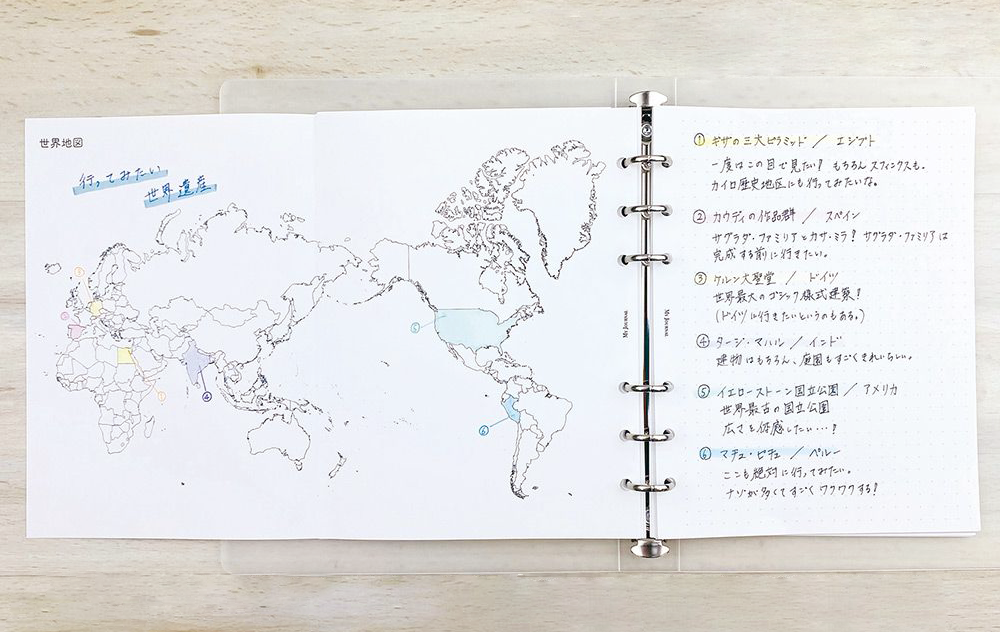 世界地図
行ってみたい
世界遺産
③
②
①
④
⑤
⑥
My Journal
My Journal
① ギザの三大ピラミッド / エジプト
一度はこの目で見たい! もちろんスフィンクスも。
カイロ歴史地区にも行ってみたいな。
② ガウディの作品群 / スペイン
サグラダ・ファミリアとカサ・ミラ! サグラダ・ファミリアは
完成する前に行きたい。
③ ケルン大聖堂 / ドイツ
世界最大のゴシック様式建築!
(ドイツに行きたいというのもある。)
④ タージ・マハル / インド
建物はもちろん、庭園もすごくきれいらしい。
⑤ イエローストーン国立公園 / アメリカ
世界最古の国立公園
広さを体感したい…!
⑥ マチュ・ピチュ / ペルー
ここも絶対に行ってみたい。
ナゾが多くてすごくワクワクする!